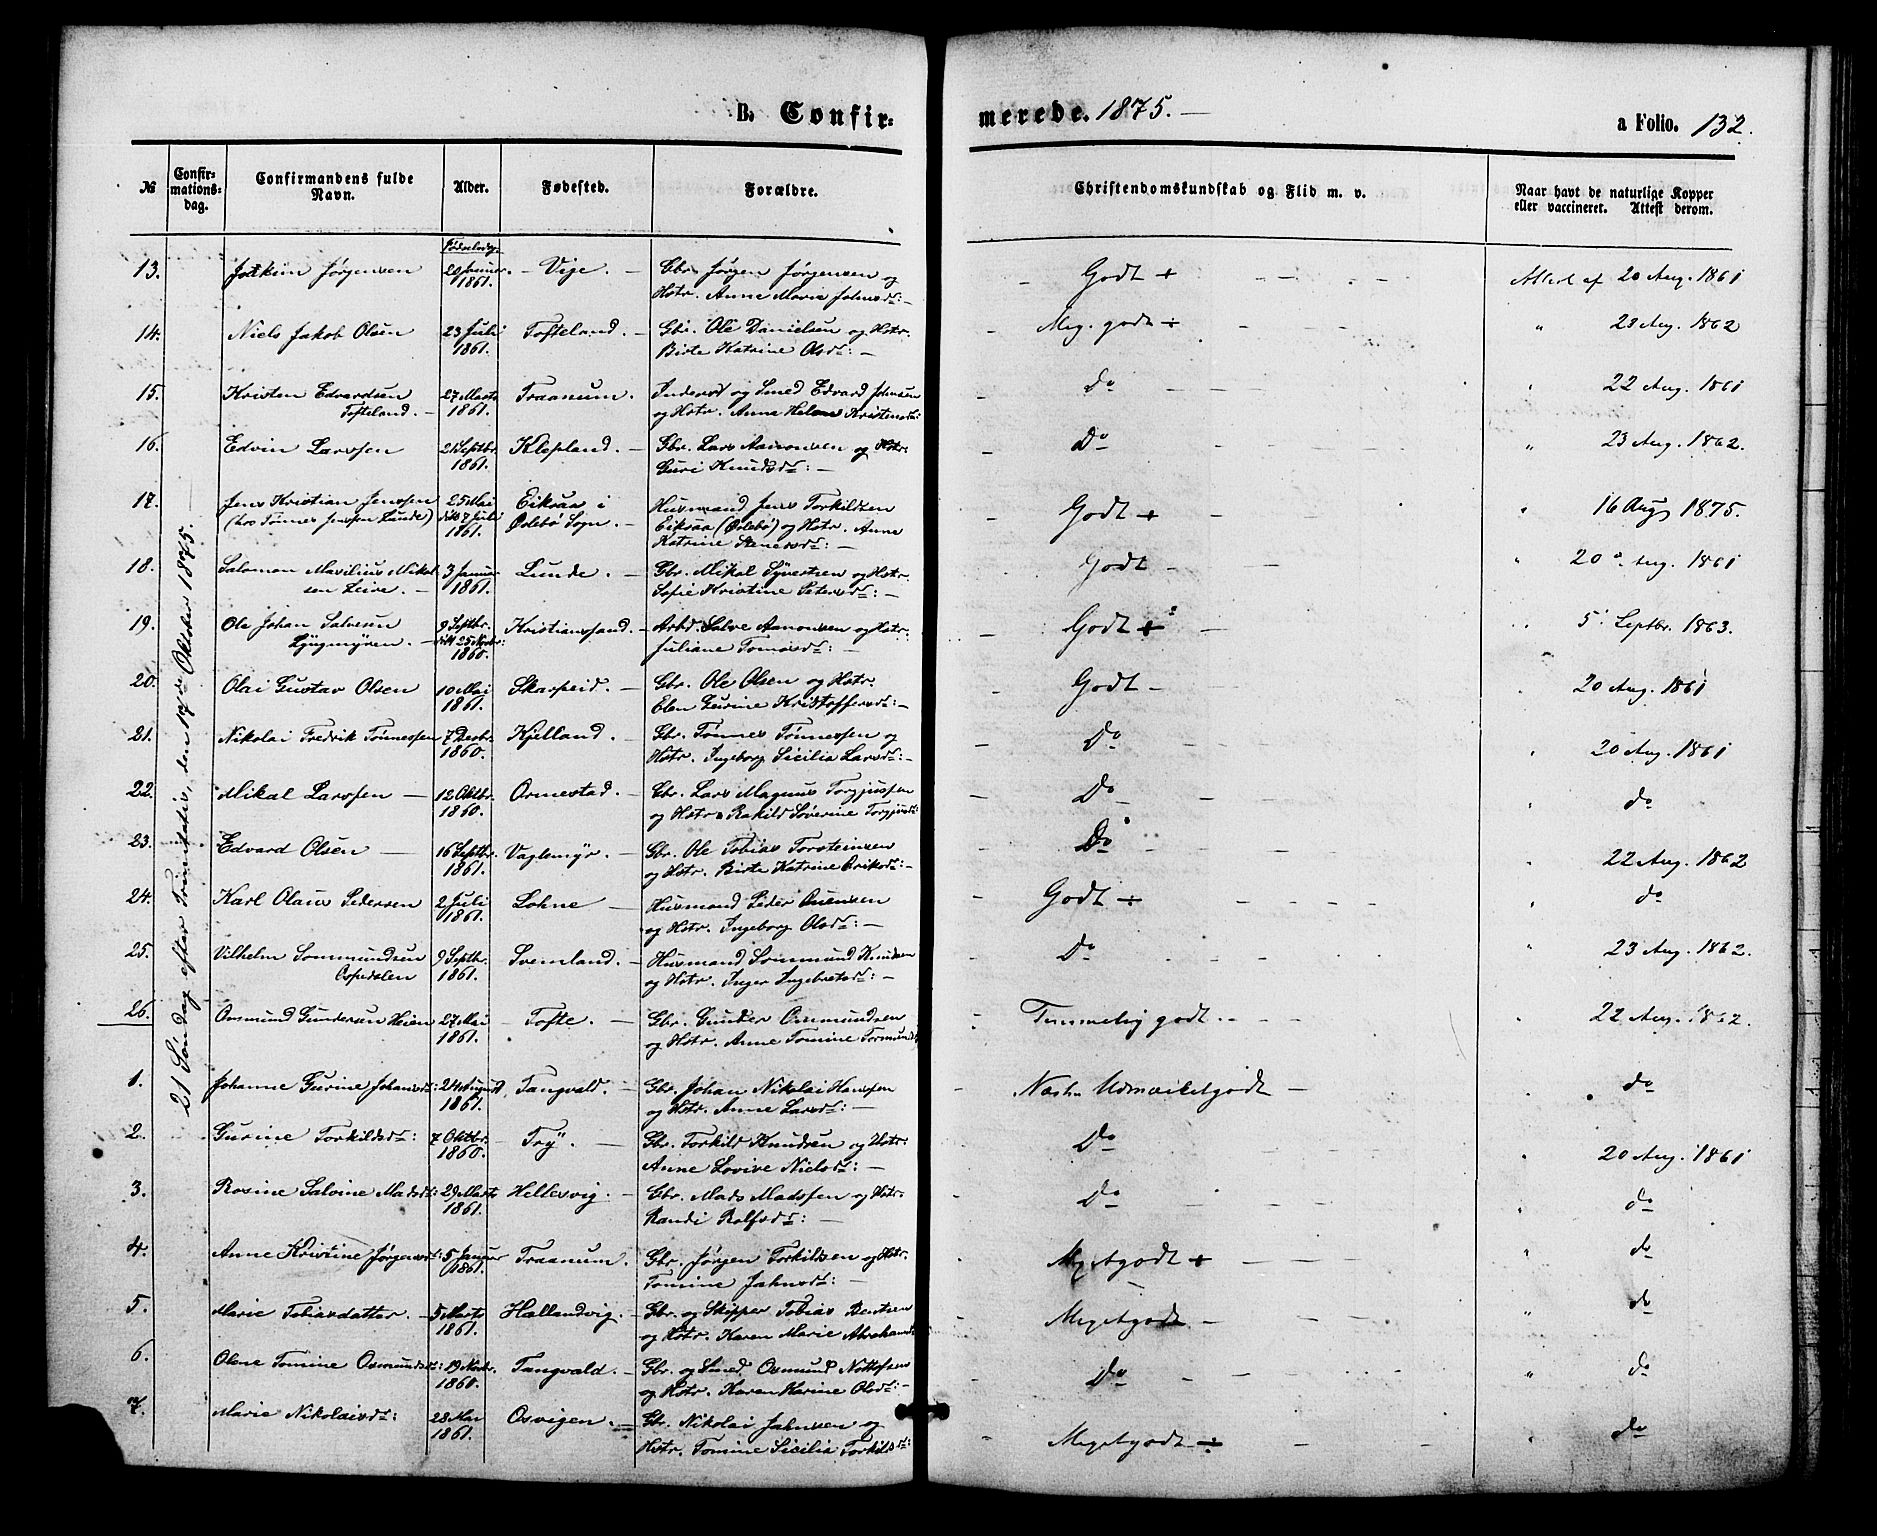 B. Confirmerede. 1875. —
a Folio. 132.
№ Confirmationsdag. Confirmandens fulde Navn. Alder. Fødested. Forældre. Christendomskundskab og Flid m. v. Naar havt de naturlige Kopper eller vaccineret. Attest derom.
21 Søndag efter Trinitatis, den 17de Oktober 1875.
Fødselsdag
13. Joakim Jørgensen 20 Januar 1861. — Vige. — Gbr. Jørgen Jørgensen og
Hstr. Anne Maria Johnsdr: — Godt + Attest af 20 Aug. 1861
14. Niels Jakob Olsen 23 Juli 1861. Tofteland. — Gbr. Ole Danielsen og Hstr.
Birte Katrine Olsdr: — Meg. godt ÷ " 23 Aug. 1862
15. Kristen Edvardsen Tofteland. — 27 Marts 1861. Traanum. Inderst og Smed Edvard Johnsen
og Hstr. Anna Helene Kristensdr: Do 22 Aug. 1861
16. Edvin Larssen 21 Septbr. 1861. Klepland. — Gbr. Lars Aanonsen og Hstr.
Guri Knudsdr: — Do " 23 Aug. 1862.
17. Jens Kristian Jenssen (hos Tønnes Jenssen Lunde) 25 Mai 7 Juli 1861. Eikraa i Øslebø Sogn. — Husmand Jens Torkildsen
Eikraa (Øslebø) og Hstr. Anne
Katrine Stenersdr: — Godt + " 16 Aug 1875.
18. Salomon Maxilius Mikalsen Leire. — 3 Januar 1861. Lunde. — Gbr. Mikal Syvertsen og Hstr.
Sofie Kristine Petersdr: — Godt — " 20 Aug. 1861
19. Ole Johan Salvesen Lyngmyren. — 9 Septbr. 25 Novbr. 1860. Kristianssand. — Arbd. Salve Aanonsen og Hstr:
Juliane Tomasdr: — Godt + 5 Septbr. 1863.
20. Olai Gustav Olsen 10 Mai 1861. Skarpeid. — Gbr. Ole Olsen og Hstr.
Elen Gurine Kristoffersdr: — Godt — 20 Aug. 1861
21. Nikolai Fredrik Tønnessen 7 Decbr. 1860. Kjelland. — Gbr. Tønnes Tønnessen og
Hstr. Ingeborg Sicilia Larsdr: — Do 20 Aug. 1861
22. Mikal Larssen — 12 Oktbr. 1860. Ormestad. — Gbr. Lars Magnus Torgjussen
og Hstr. Rakild Søverine Torgjusdr: Do do
23. Edvard Olsen — 16 Septbr. 1861. Vaglemyr. — Gbr. Ole Tobias Torsteinsen
og Hstr. Birte Katrine Eriksdr: — Do 22 Aug. 1862
24. Karl Olaus Pedersen 2 Juli 1861. Lohne — Husmand Peder Ouensen
og Hstr. Ingeborg Olsdr: — Godt ÷ do
25. Vilhelm Sommundsen Ospedalen 9 Septbr. 1861. Svemland. — Husmand Sommund Knudsen
og Hstr. Inger Ingebretsdr: — Do " 23 Aug. 1862.
26. Osmund Gundersen Heien 27 Mai 1861. — Tofte. — Gbr. Gunder Ommundsen
og Hstr. Anne Tomine Tormunds Temmelig godt. — 22 Aug. 1862.
1. Johanne Gurine Johansdr: 24 August 1861. Tangvald. — Gbr. Johan Nikolai Hanssen
og Hstr. Anne Larsdr: — Næsten Udmærketgodt — do
2. Gurine Torkildsdr: 7 Oktbr. 1860. — Try. — Gbr. Torkild Knudsen og Hstr:
Anne Lovise Nielsdr: — Do 20 Aug. 1861
3. Rosine Salvine Madsdr: 29 Marts 1861. Hellesvig. — Gbr. Mads Madssen og Hstr.
Randi Rolfsdr: — Do do
4. Anne Kristine Jørgensdr: 5 Januar 1861. Traanum. Gbr. Jørgen Torkildsen og Hstr.
Tomine Jahnsdr: — Megetgodt + " do
5. Marie Tobiasdatter. — 5 Marts 1861. Hallandvig. — Gbr. og Skipper Tobias Bentsen
og Hstr. Karen Marie Abrahamsdr Megetgodt — " do
6. Olene Tomine Osmundsdr: 19 Novbr. 1860. Tangvald. — Gbr. og Smed Osmund Nottofsen
og Hstr. Karen Karine Olsdr: — Do " do
7. Marie Nikolaisdr: 28 Mai 1861. Osvigen. — Gbr. Nikolai Jahnsen og
Hstr. Tomine Sicilia Torkildsdr: Megetgodt ÷ " do